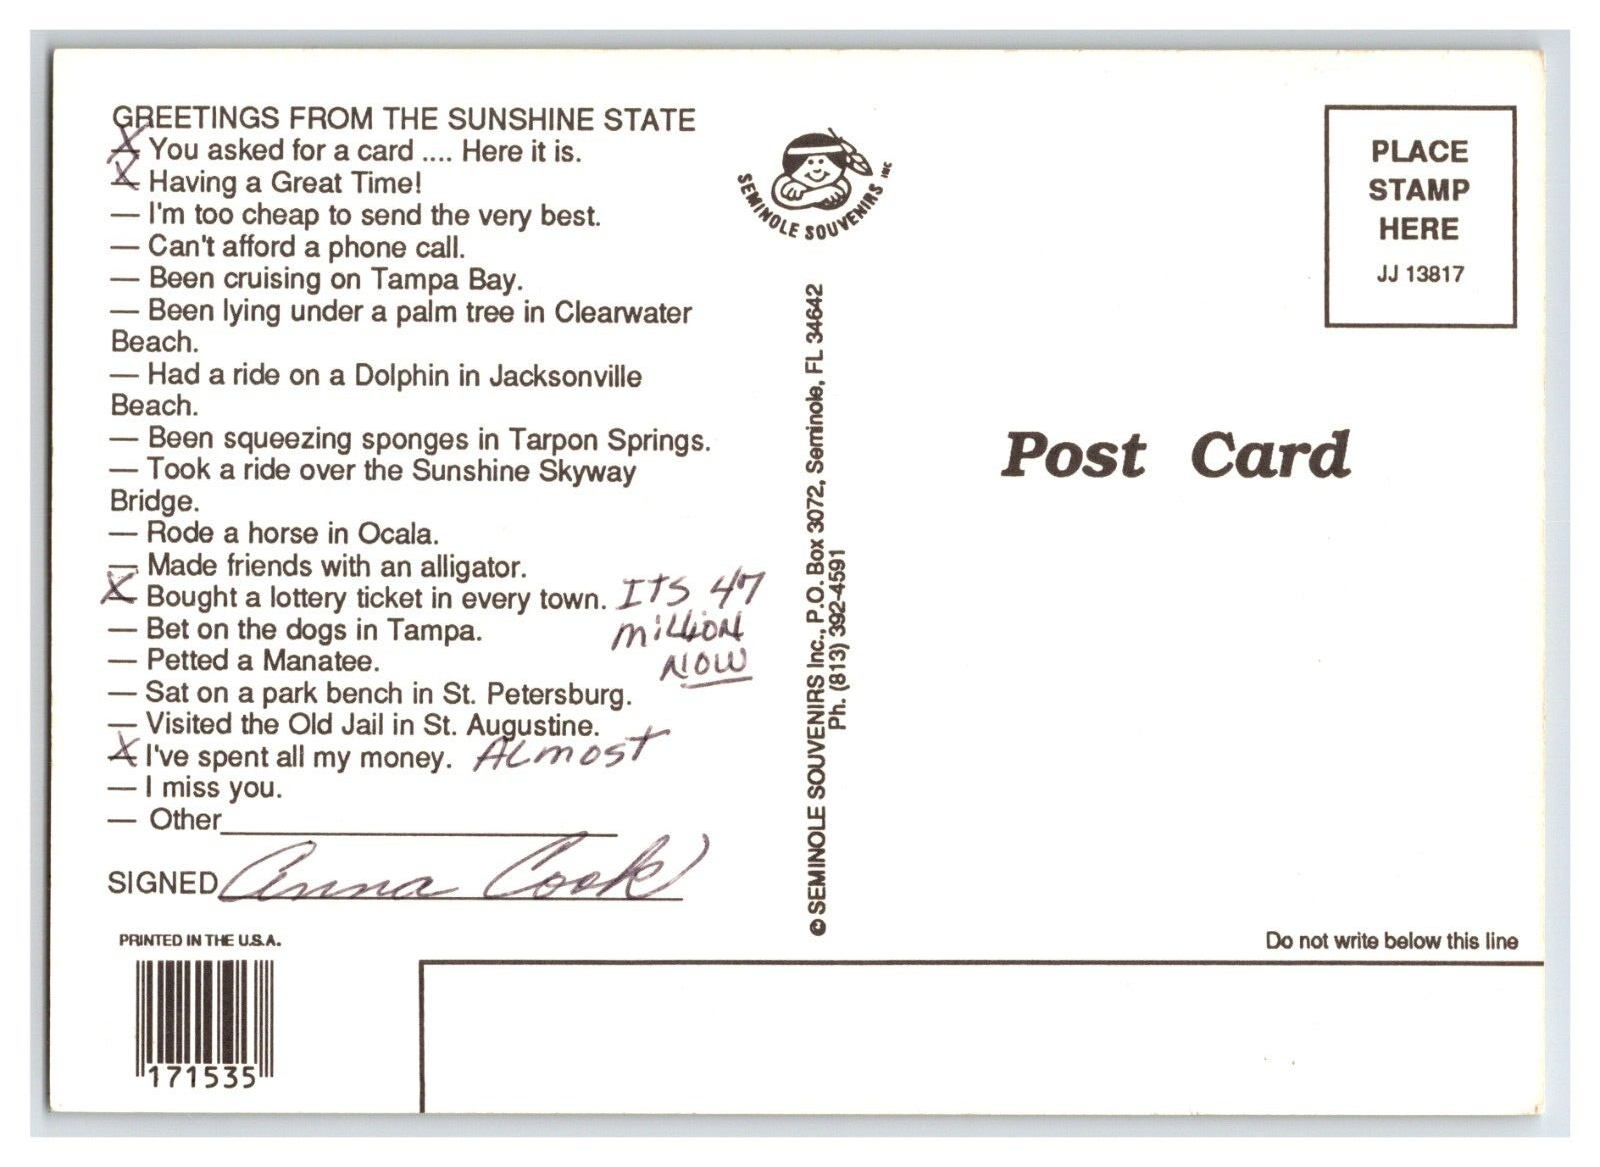 GREETINGS FROM THE SUNSHINE STATE
X You asked for a card .... Here it is.
X Having a Great Time!
— I'm too cheap to send the very best.
— Can't afford a phone call.
— Been cruising on Tampa Bay.
— Been lying under a palm tree in Clearwater
Beach.
— Had a ride on a Dolphin in Jacksonville
Beach.
— Been squeezing sponges in Tarpon Springs.
— Took a ride over the Sunshine Skyway
Bridge.
— Rode a horse in Ocala.
— Made friends with an alligator.
X Bought a lottery ticket in every town. ITS 47
MILLION
NOW
— Bet on the dogs in Tampa.
— Petted a Manatee.
— Sat on a park bench in St. Petersburg.
— Visited the Old Jail in St. Augustine.
X I've spent all my money. ALMOST
— I miss you.
— Other
SIGNED Anna Cook
PRINTED IN THE U.S.A.
171535
SEMINOLE SOUVENIRS INC
© SEMINOLE SOUVENIRS Inc., P.O. Box 3072, Seminole, FL 34642
Ph. (813) 392-4591
PLACE
STAMP
HERE
JJ 13817
Post Card
Do not write below this line